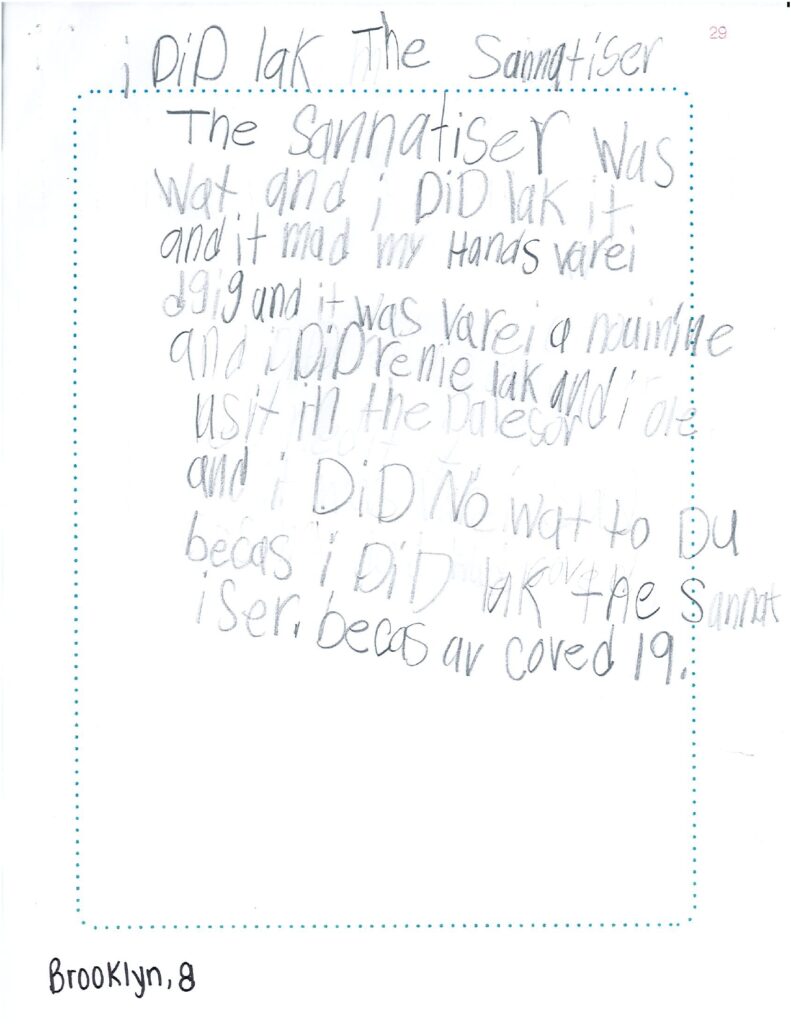 29
i DiD lak The Sannatiser
The Sannatiser was
Wat and i DiD lak it
and it mad my Hands varei
and it was varei a
and i DiD renie lak and i
usit in the
and i DiD No wat to Du
becas i DiD lak the Sannat
iser. becas av coved 19.
Brooklyn, 8